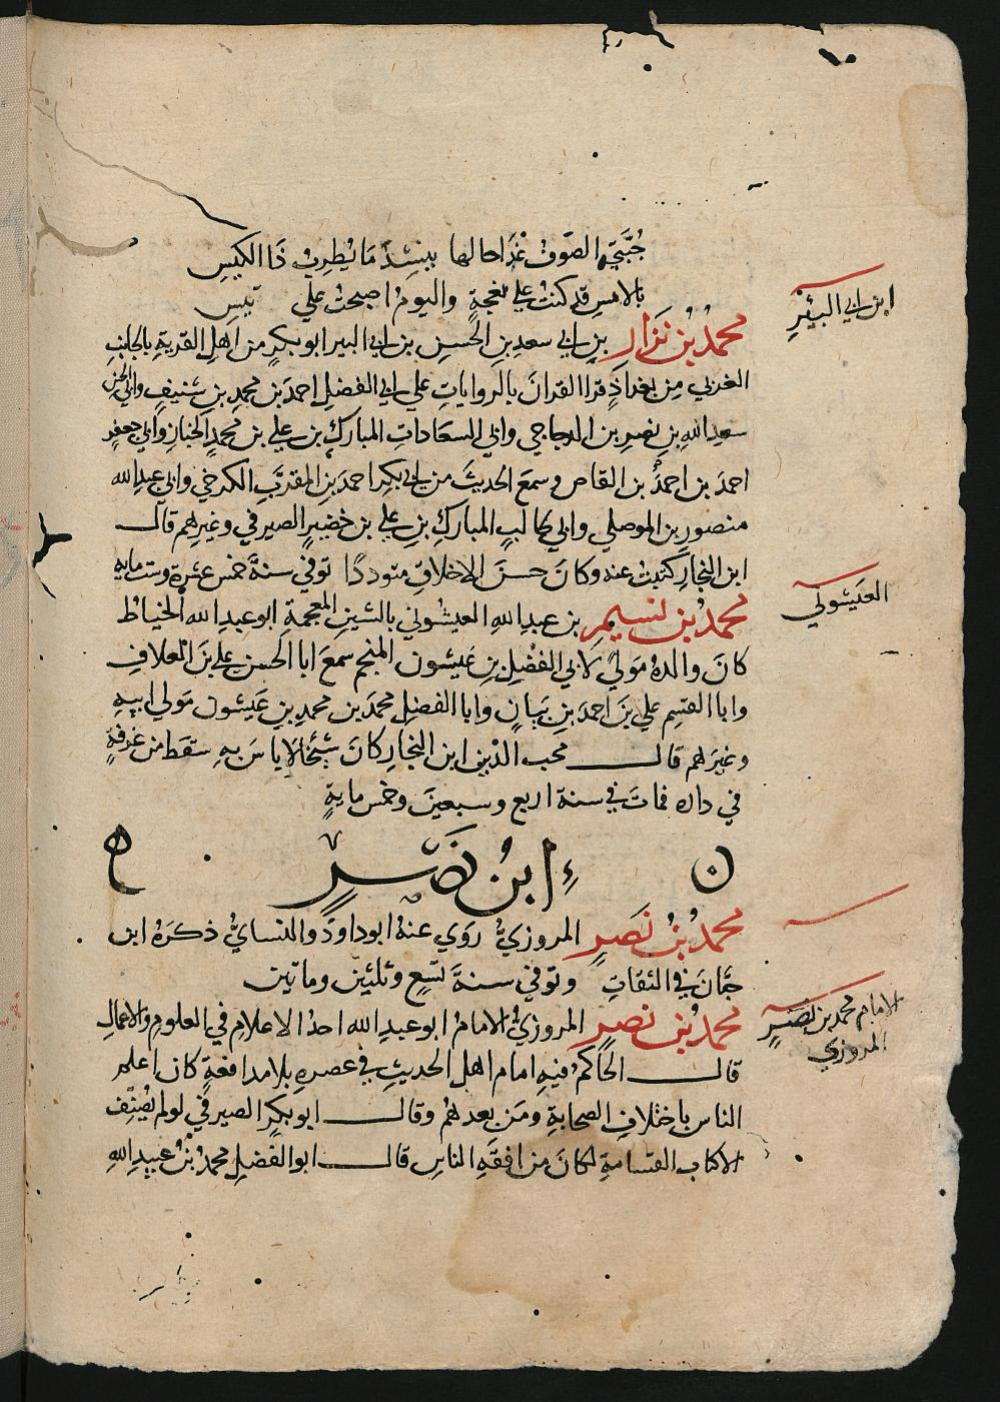 جُبَّتِي الصّوفُ غَدَا حالها ينشِدُ مَا يُطرِبُ ذَا الكيسِ
بالامسِ قد كنتُ علي نعجةٍ واليومُ اصبحتُ علي تيسِ
ابن ابي البئر
محمدُ بنُ نزار بنِ ابي سعدِ بنِ الحسنِ بن ابي البير ابو بكرٍ من اهلِ القريةِ بالجانبِ
الغربي مِن بغداذَ قرا القرانَ بالرواياتِ علي ابي الفضلِ احمدَ بن محمدِ بنِ شنيفٍ وابي الحسن
سعد اللهِ بنِ نصرِ بن الدجاجي وابي السعَاداتِ المباركِ بن علي بن محمدٍ الخباز وابي جعفرٍ
احمدَ بن احمدَ بن القاص وسمعَ الحديثَ من ابي بكرٍ احمدَ بنِ المقرّب الكرخي وابي عبدِ الله
منصور بن الموصلي وابي طالب المباركِ بنِ علي بن خضيرٍ الصيرفي وغيرِهم قال
ابن النجارِ كتبتُ عنه وكانَ حسنَ الاخلاقِ متوددًا توفي سنةَ خمس عشرة وست مايه
العَيشوني
محمدُ بن نسيمٍ بن عبدِ اللهِ العيشوني بالشينِ المعجمةِ ابو عبدِ الله الخياط
كانَ والدهُ مَوليً لابي الفضلِ بنِ عَيشون المنجم سمعَ ابا الحسن علي بنَ العلافِ
وابا القسِم علي بنَ احمدَ بنِ بَيانٍ وابا الفضلِ محمدَ بن محمدِ بنِ عَيشون مَولي ابيهِ
وغيرَهم قال محب الدّين ابن النجار كانَ شَيْخًا لا باسَ بهِ سقطَ من غرفةٍ
في داره فماتَ في سنة اربع وسبعينَ وخمس مايةٍ
ن ابنُ نَصْرٍ ه
محمدُ بنُ نَصرٍ المروزيُّ رَوَي عنهُ ابو داودَ والنسايُّ ذكرَهُ ابن
حبَّانَ في الثقاتِ وتوفي سنةَ تسعٍ وثلثين وماتين
الامام محمد بن نصرٍ
المروزي
محمدُ بن نصرٍ المروزيُّ الامامُ ابو عبدِ الله احدُ الاعلامِ في العلومِ والاعمالِ
قال الحاكمُ فيهِ امام اهل الحديثِ في عصرِه بلا مدافعةٍ كان اعلم
الناس باختلافِ الصحابةِ ومَن بعدهُم وقال ابو بكرٍ الصيرفي لو لم يُصنِّف
الا كتاب القسامةِ لكانَ من افقَهِ الناسِ قال ابو الفضلِ محمدُ بنُ عبيدِ اللهِ